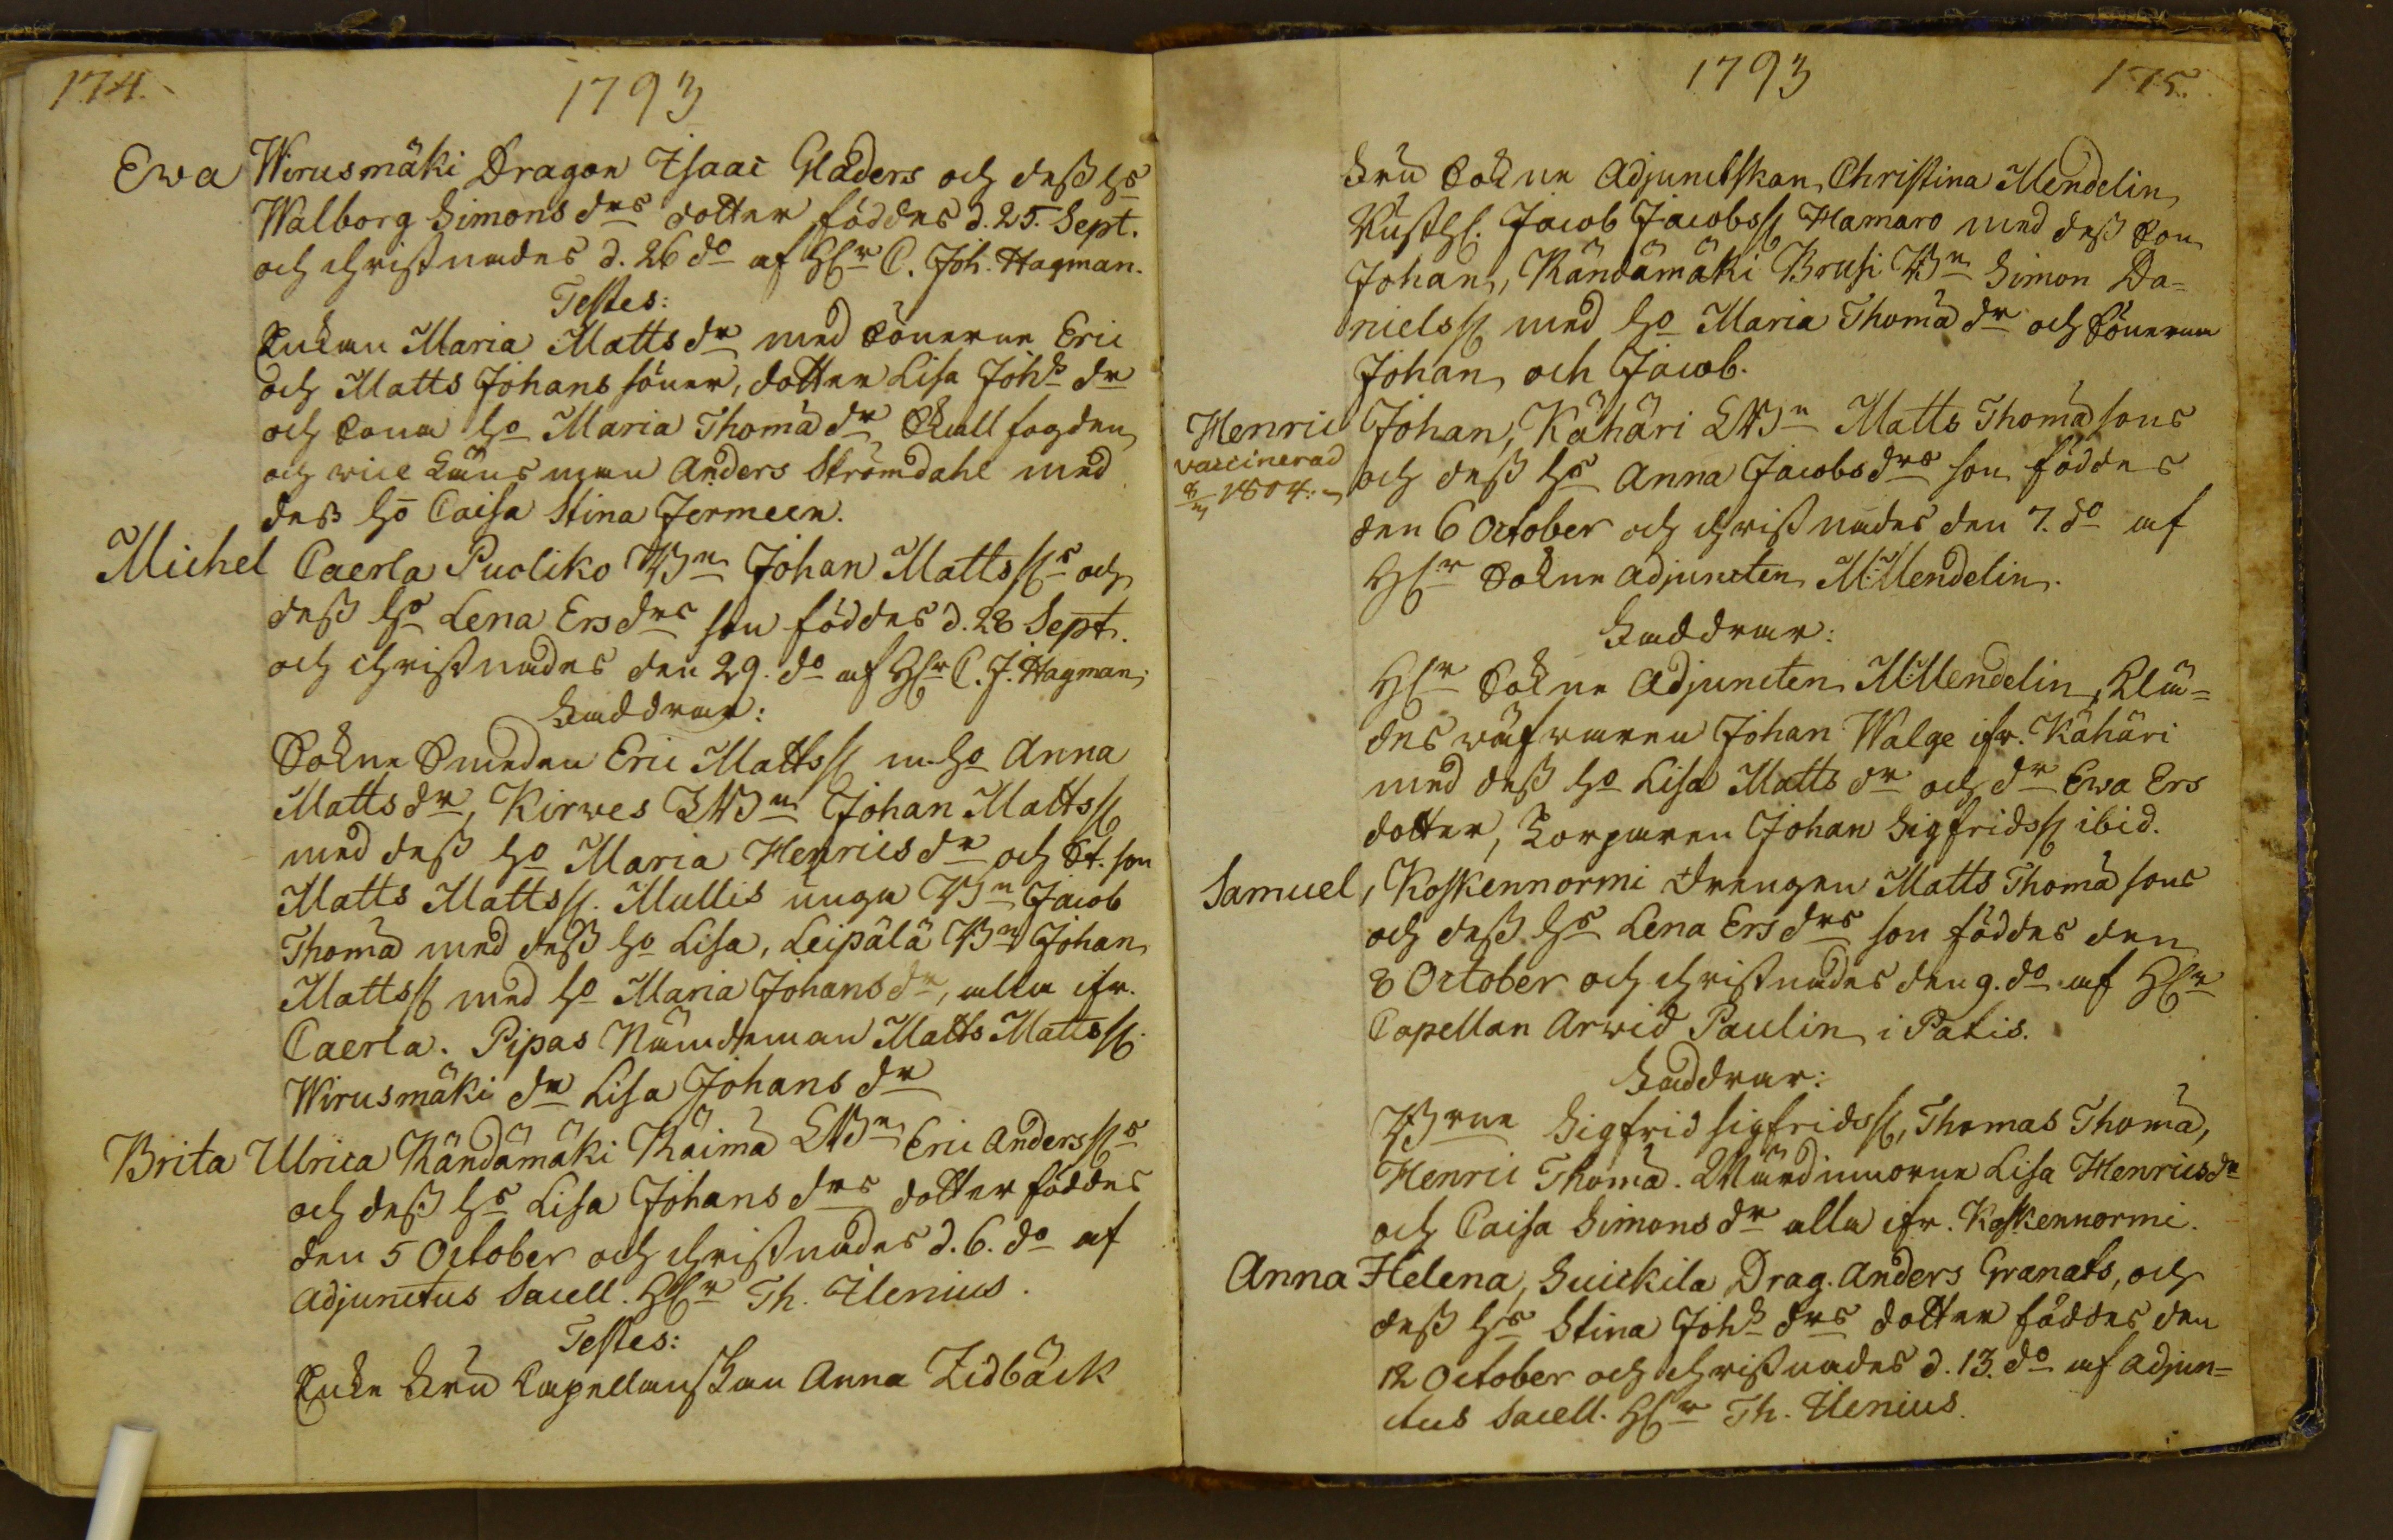 174.
1793
Ewa Wirusmäki Dragon Isaac Gladers och dess hs
Walborg Simons drs dotter föddes d. 25. Sept.
och christnades d. 26 do af Hr C. Joh. Hagman.
Testes:
Enkan Maria Matts dr med Sönerne Eric
och Matts Johans söner, dotter Lisa Johs dr
och Sona ho Maria Thomæ dr, Skall fogden
och vice Länsman Anders Strömdahl med
dess ho Caisa Stina Jermeen.
Michel Caerla Puoliko Bn Johan Mattsss och
dess hs Lena Ers drs son föddes d. 28 Sept.
och christnades den 29. do af Hr C. J. Hagman,
Faddrar:
Sokne Smeden Eric Mattss m. ho Anna
Matts dr, Kirwes LBn Johan Mattss
med dess ho Maria Henrics dr och St. son
Matts Mattss. Mullis unga Bn Jacob
Thomæ med dess ho Lisa, Leipälä Bn Johan
Mattss med ho Maria Johans dr, alla ifr.
Caerla. Pipas Nämdeman Matts Mattss.
Wirusmäki dr Lisa Johans dr
Brita Ulrica Rändämäki Räimä LBn Eric Andersss
och dess hs Lisa Johans drs dotter föddes
den 5 October och christnades d. 6. do af
Adjunctus Sacell. Hr Th. Ilenius.
Testes:
Enke Fru Capellanskan Anna Lidbäck
1793
175.
Fru Sokne Adjunctskan Christina Mendelin
Rusth. Jacob Jacobss Hamaro med dess Son
Johan, Rändämäki Brusi Bn Simon Da=
nielss med ho Maria Thomæ dr och Sönerna
Johan och Jacob.
Henric Johan, Kähäri LBn Matts Thomæ sons
vaccinerad
1804.
och dess hs Anna Jacobs drs son föddes
den 6 October och christnades den 7. do af
Hr Sokne Adjuncten M: Mendelin.
Faddrar:
Hr Sokne Adjuncten M: Mendelin, Klä=
des wäfwaren Johan Walge ifr. Kähäri
med dess ho Lisa Matts dr och dr Ewa Ers
dotter, Torparen Johan Sigfridss ibid.
Samuel, Koskennormi Drengen Matts Thomæ sons
och dess hs Lena Ers drs son föddes den
8 October och christnades den 9. do af Hr
Capellan Arwid Paulin i Patis.
Faddrar:
Brne Sigfrid Sigfridss, Thomas Thomæ,
Henric Thomæ. Wärdinnorne Lisa Henrics dr
och Caisa Simons dr alla ifr. Koskennormi.
Anna Helena, Suickila Drag. Anders Granats, och
dess hs Stina Johs drs dotter föddes den
12 October och christnades d. 13. do af Adjun=
ctus Sacell. Hr Th. Ilenius.